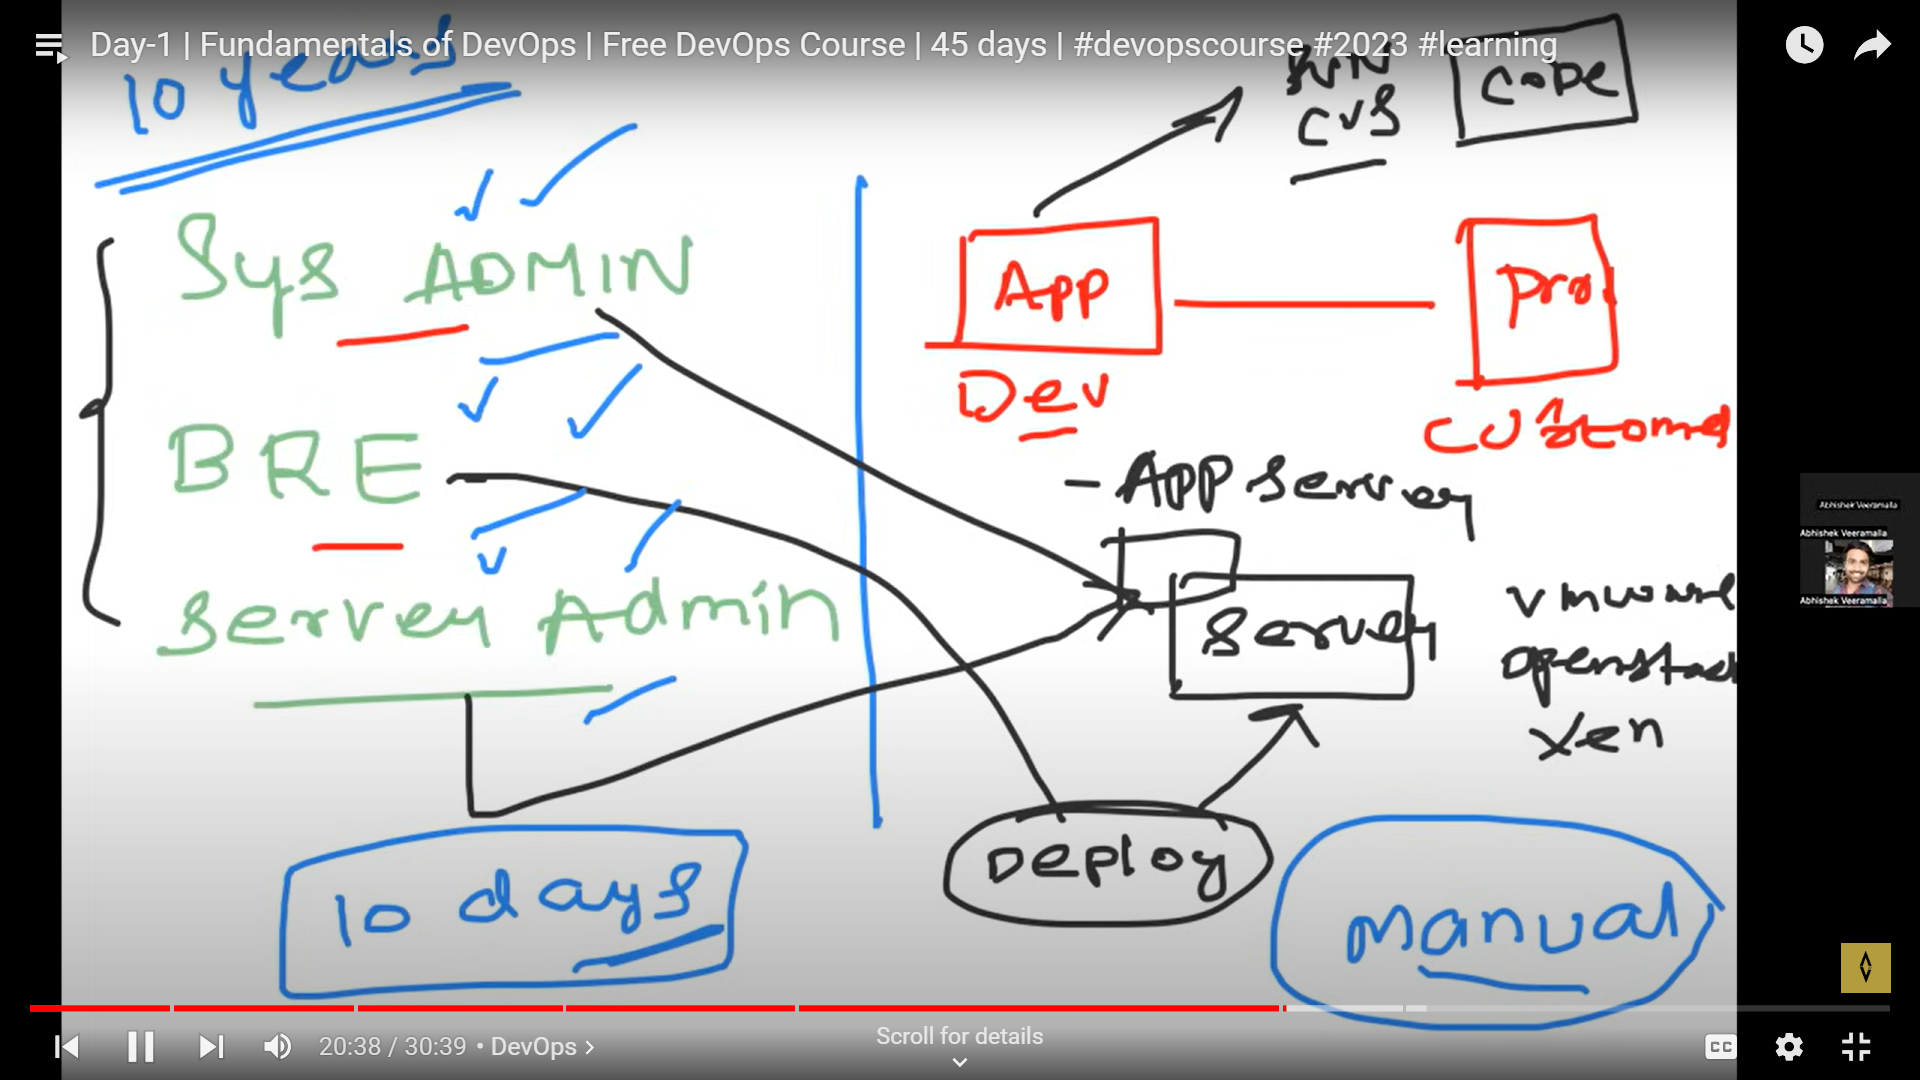 Day-1 | Fundamentals of DevOps | Free DevOps Course | 45 days | #devopscourse #2023 #learning
10 years
CVS
CODE
Sys ADMIN
App
Dev
BRE
- APP Server
Server Admin
Server
Xen
Deploy
10 days
manual
Abhishek Veeramalla
Abhishek Veeramalla
Abhishek Veeramalla
20:38 / 30:39 • DevOps >
Scroll for details
CC